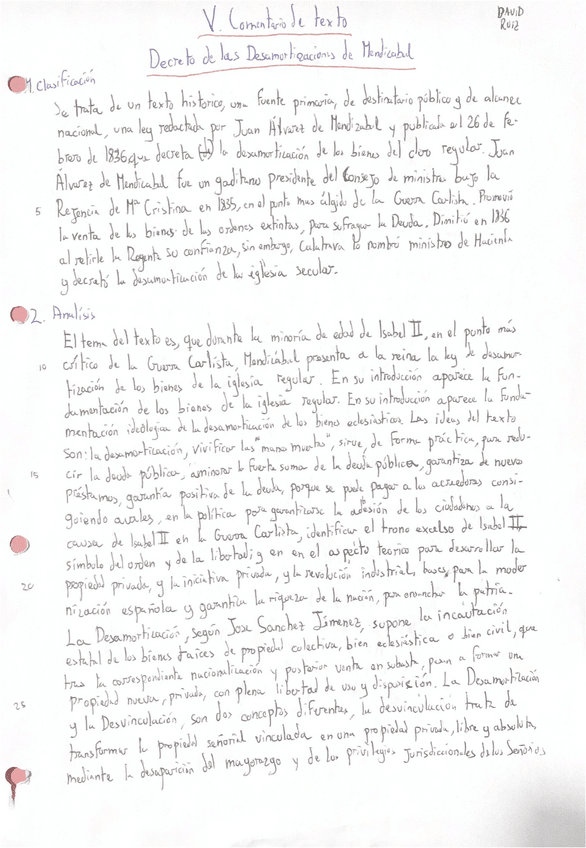 V. Comentario de texto
DAVID
RUIZ
Decreto de las Desamortizaciones de Mendicabal
1. Clasificación
Se trata de un texto histórico, una fuente primaria, de destinatario público y de alcance
nacional, una ley redactada por Juan Álvarez de Mendizabal y publicada el 26 de fe-
brero de 1836, que decreta la desamortización de los bienes del clero regular. Juan
Álvarez de Mendicabal fue un gaditano presidente del Consejo de ministros bajo la
5 Regencia de Mª Cristina en 1835, en el punto mas álgido de la Guerra Carlista. Promovió
la venta de los bienes de las ordenes extintas, para sufragar la Deuda. Dimitió en 1836
al retirle la Regenta su confianza, sin embargo, Calatrava lo nombró ministro de Hacienda
y decretó la desamortización de la iglesia secular.
2. Análisis
El tema del texto es, que durante la minoría de edad de Isabel II, en el punto más
10 crítico de la Guerra Carlista, Mendicábal presenta a la reina la ley de desamor-
tización de los bienes de la iglesia regular. En su introducción aparece la Fun-
damentación de los bienes de la iglesia regular. En su introducción aparece la Funda-
mentación ideologica de la desamortización de los bienes eclesiásticos. Las ideas del texto
son: la desamortización, vivificar las "manos muertas", sirve, de forma práctica, para redu-
15 cir la deuda pública, aminorar la fuerte suma de la deuda pública, garantiza de nuevo
préstamos, garantía positiva de la deuda, porque se puede pagar a los acreedores consi-
guiendo avales, en la política para garantizarse la adesión de los ciudadanos a la
causa de Isabel II en la Guerra Carlista, identificar el trono excelso de Isabel II,
símbolo del orden y de la libertad; y en en el aspecto teorico para desarrollar la
20 propiedad privada, y la iniciativa privada, y la revolución industrial, bases, para la moder
nización española y garantía la riqueza de la nación, para la patria.
La Desamortización, según Jose Sanchez Jímenez, supone la incautación
estatal de los bienes raíces de propiedad colectiva, bien eclesiástica o bien civil, que
tras la correspondiente nacionalización y posterior venta en subasta, pasan a formar una
25 propiedad nueva, privada, con plena libertad de uso y disposición. La Desamortización
y la Desvinculación, son dos conceptos diferentes, la desvinculación trata de
transformar la propiedad señorial vinculada en una propiedad privada, libre y absoluta,
mediante la desaparición del mayorazgo y de los privilegios Jurisdiccionales de los Señoríos